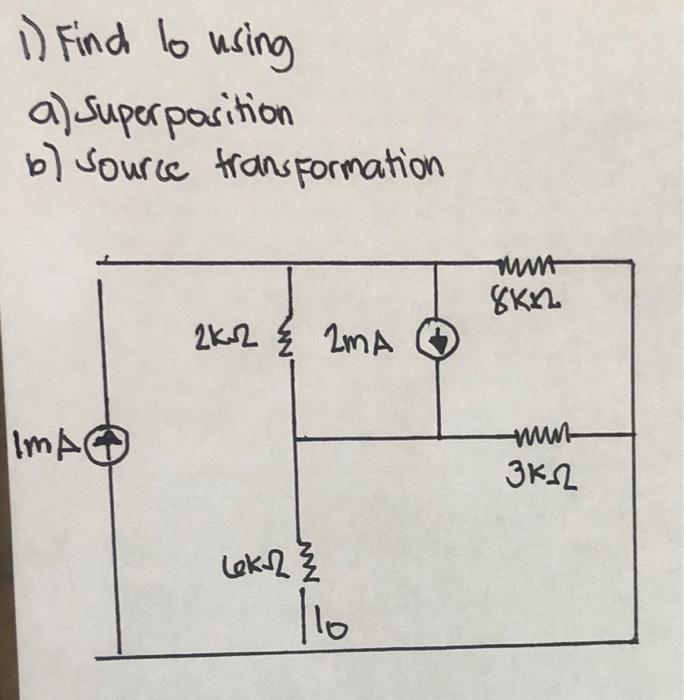 1) Find Io using
a) Superposition
b) Source transformation
8KΩ
2KΩ
2mA
1mA
3KΩ
6KΩ
Io